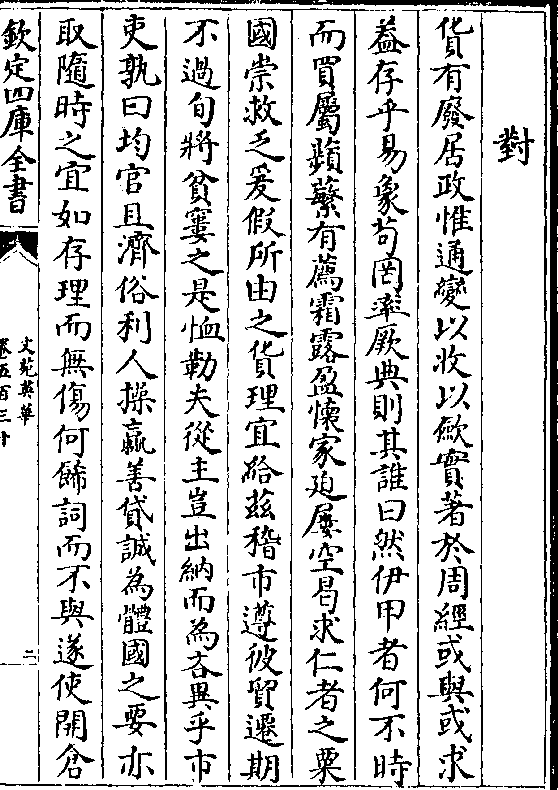 對
貨有廢居政惟通變以收以斂實著於周經或與或求
益存乎易象茍罔率厥典則其誰曰然伊甲者何不時
而買屬蘋蘩有薦霜露盈懷家廹屢空曷求仁者之粟
國崇救乏爰假所由之貨理宜給兹稽市遵彼貿遷期
不過旬將貧窶之是恤勒夫從主豈出納而為吝異乎市
吏孰曰均官且濟俗利人操贏善貸誠為體國之要亦
取隨時之宜如存理而無傷何餙詞而不與遂使開倉
欽定四庫全書
文苑英華
卷五百三十
二